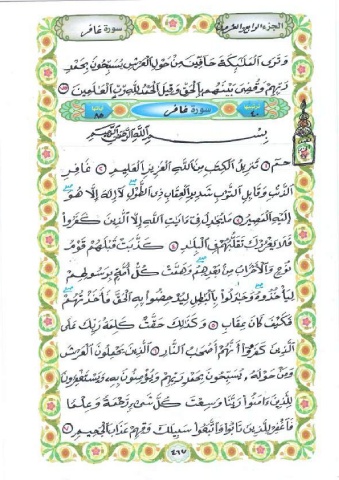 سورة غافر الجزء الرابع والعشرون
وَتَرَى الْمَلَٰٓئِكَةَ حَآفِّينَ مِنْ حَوْلِ الْعَرْشِ يُسَبِّحُونَ بِحَمْدِ
رَبِّهِمْ وَقُضِيَ بَيْنَهُم بِالْحَقِّ وَقِيلَ الْحَمْدُ لِلَّهِ رَبِّ الْعَٰلَمِينَ ٧٥
ترتيبها ٤٠ سورة غافر آياتها ٨٥
بِسْمِ اللَّهِ الرَّحْمَٰنِ الرَّحِيمِ
حمٓ ١ تَنزِيلُ الْكِتَٰبِ مِنَ اللَّهِ الْعَزِيزِ الْعَلِيمِ ٢ غَافِرِ
الذَّنۢبِ وَقَابِلِ التَّوْبِ شَدِيدِ الْعِقَابِ ذِي الطَّوْلِ لَآ إِلَٰهَ إِلَّا هُوَ
إِلَيْهِ الْمَصِيرُ ٣ مَا يُجَٰدِلُ فِيٓ ءَايَٰتِ اللَّهِ إِلَّا الَّذِينَ كَفَرُوا
فَلَا يَغْرُرْكَ تَقَلُّبُهُمْ فِي الْبِلَٰدِ ٤ كَذَّبَتْ قَبْلَهُمْ قَوْمُ
نُوحٍ وَالْأَحْزَابُ مِنۢ بَعْدِهِمْ وَهَمَّتْ كُلُّ أُمَّةٍۭ بِرَسُولِهِمْ
لِيَأْخُذُوهُ وَجَٰدَلُوا بِالْبَٰطِلِ لِيُدْحِضُوا بِهِ الْحَقَّ فَأَخَذْتُهُمْ
فَكَيْفَ كَانَ عِقَابِ ٥ وَكَذَٰلِكَ حَقَّتْ كَلِمَتُ رَبِّكَ عَلَى
الَّذِينَ كَفَرُوٓا أَنَّهُمْ أَصْحَٰبُ النَّارِ ٦ الَّذِينَ يَحْمِلُونَ الْعَرْشَ
وَمَنْ حَوْلَهُ يُسَبِّحُونَ بِحَمْدِ رَبِّهِمْ وَيُؤْمِنُونَ بِهِ وَيَسْتَغْفِرُونَ
لِلَّذِينَ ءَامَنُوا رَبَّنَا وَسِعْتَ كُلَّ شَيْءٍ رَّحْمَةً وَعِلْمًا
فَاغْفِرْ لِلَّذِينَ تَابُوا وَاتَّبَعُوا سَبِيلَكَ وَقِهِمْ عَذَابَ الْجَحِيمِ ٧
٤٦٧